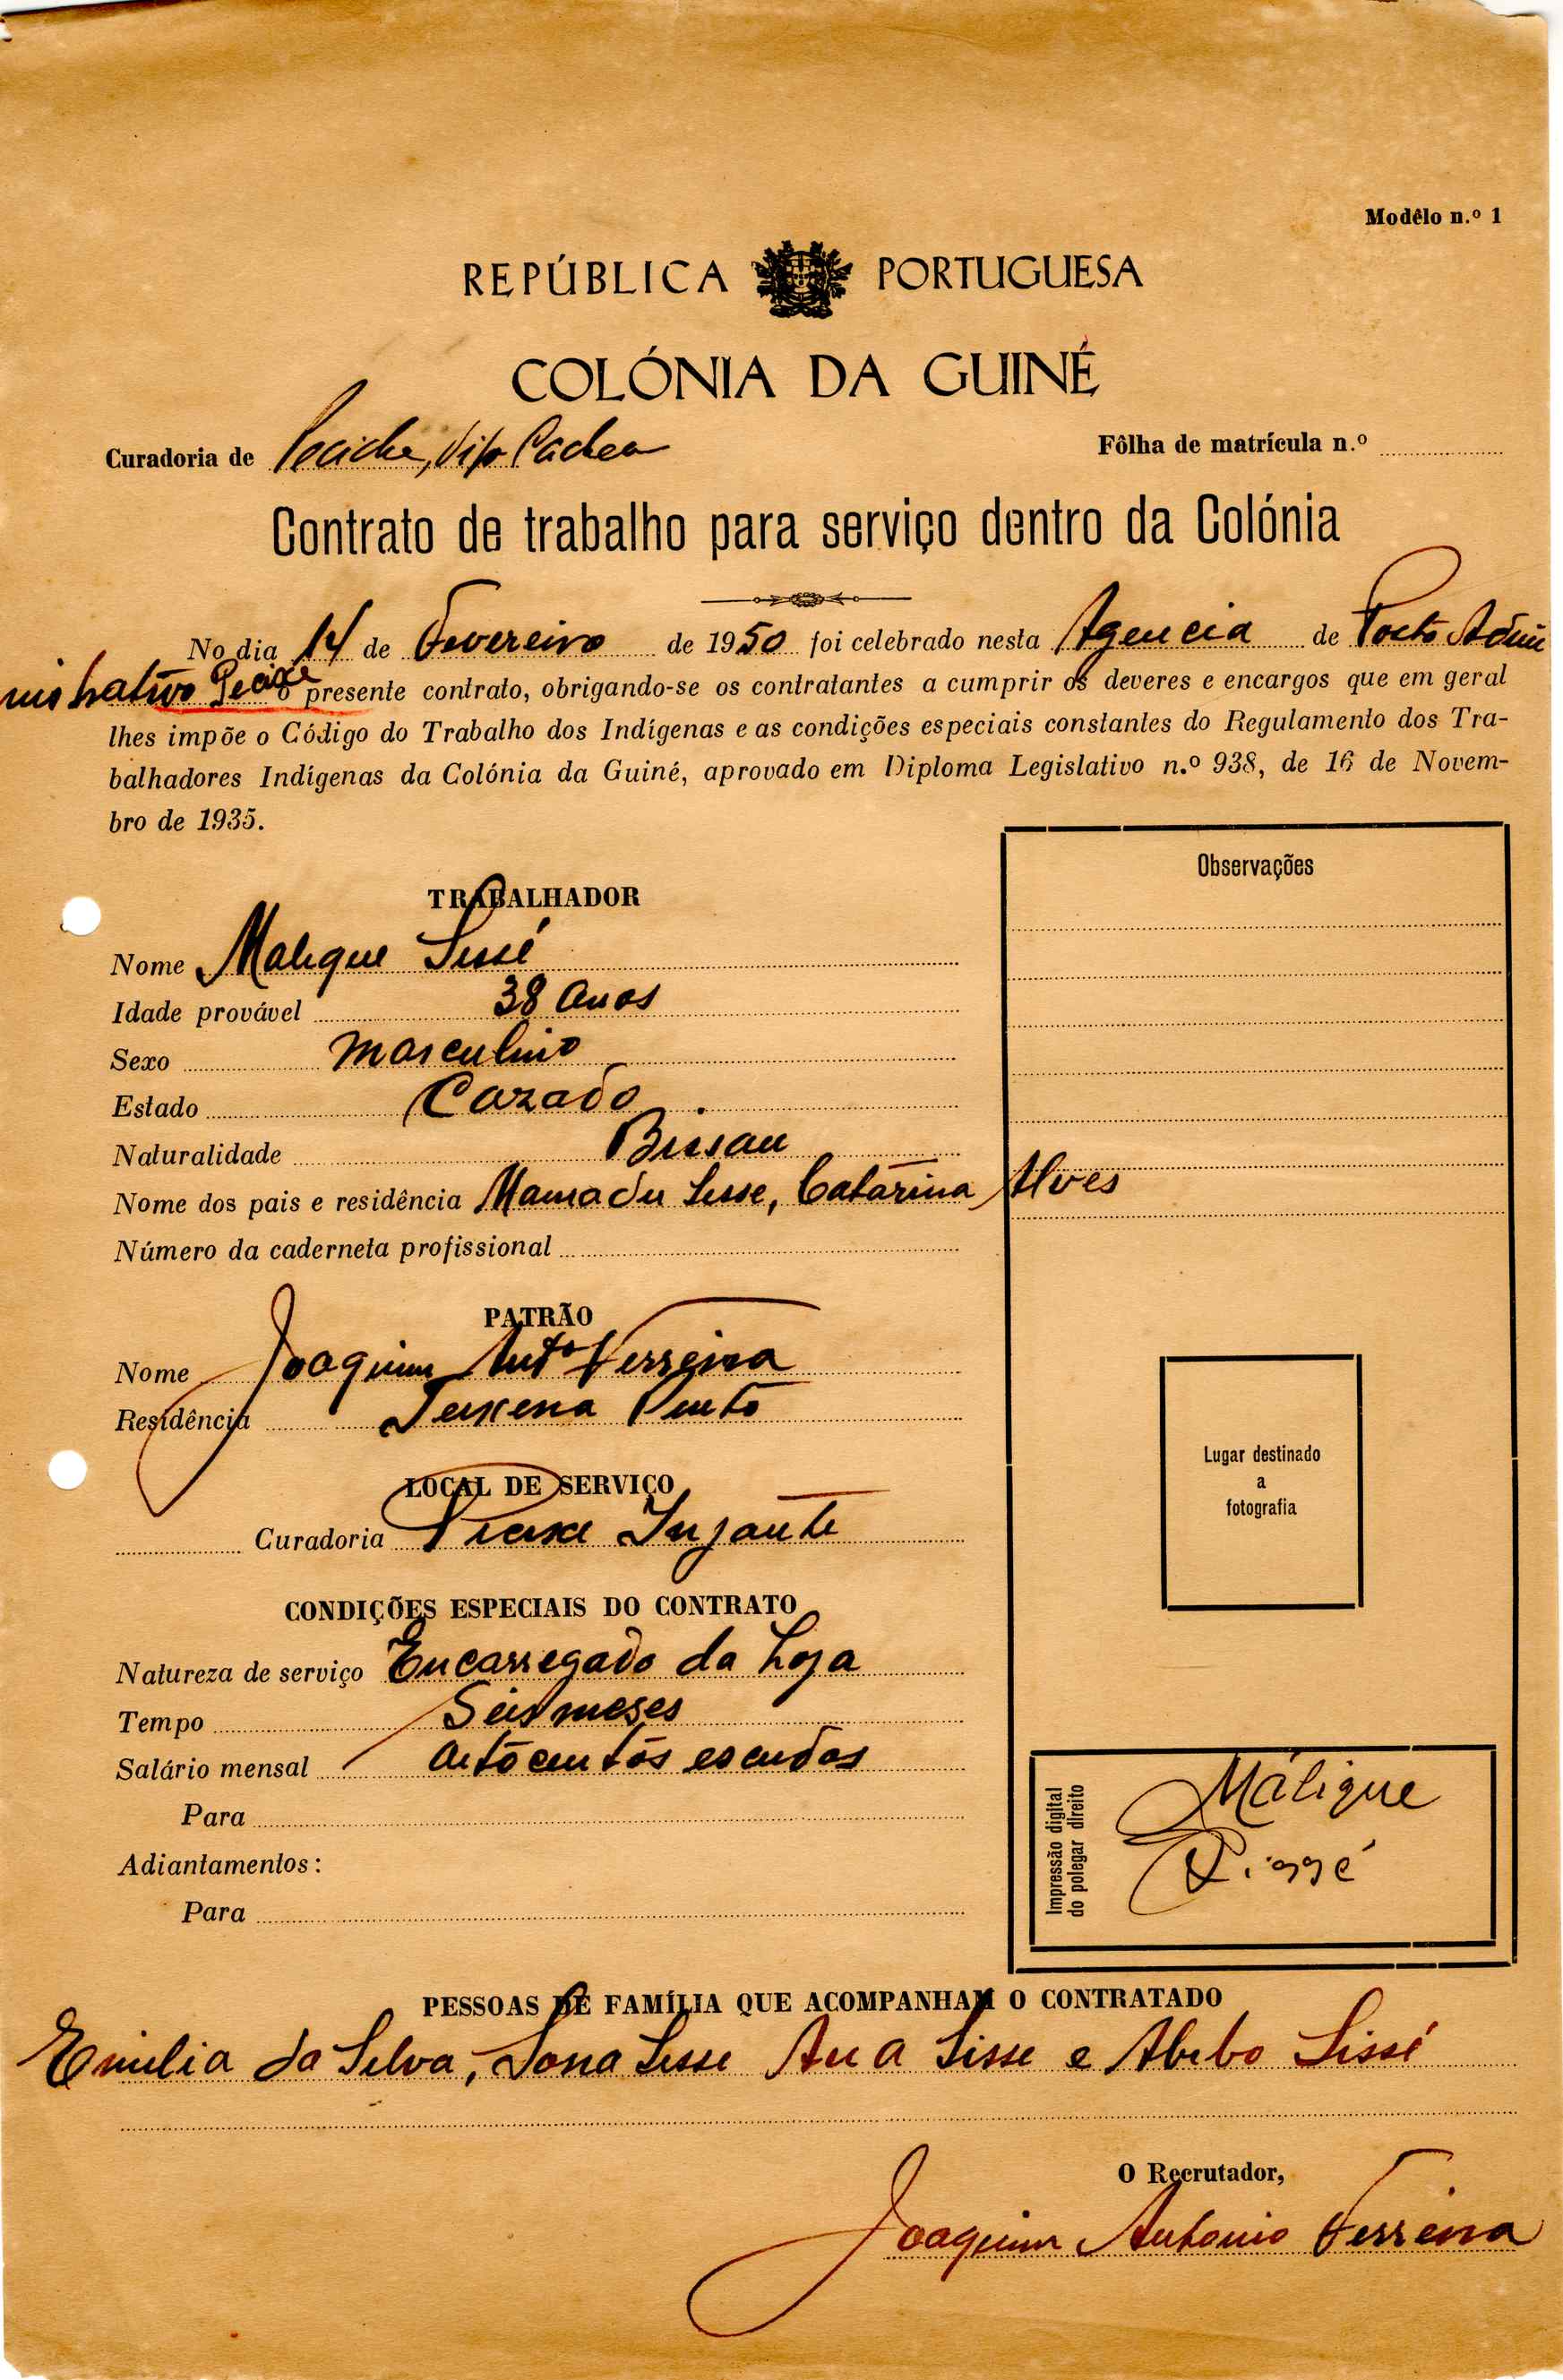 Modêlo n.º 1
REPÚBLICA PORTUGUESA
COLÓNIA DA GUINÉ
Curadoria de
Fôlha de matrícula n.º
Contrato de trabalho para serviço dentro da Colónia
No dia 14 de Fevereiro de 1950 foi celebrado nesta Agencia de Posto Admi
nistrativo Pecixe o presente contrato, obrigando-se os contratantes a cumprir os deveres e encargos que em geral
lhes impõe o Código do Trabalho dos Indígenas e as condições especiais constantes do Regulamento dos Tra-
balhadores Indígenas da Colónia da Guiné, aprovado em Diploma Legislativo n.º 938, de 16 de Novem-
bro de 1935.
Observações
TRABALHADOR
Nome Maligue Sissé
Idade provável 38 anos
Sexo masculino
Estado Cazado
Naturalidade Bissau
Nome dos pais e residência Mamadu Sisse, Catarina Alves
Número da caderneta profissional
PATRÃO
Nome Joaquim Antº Ferreira
Residência Teixeira Pinto
LOCAL DE SERVIÇO
Curadoria
Lugar destinado
a
fotografia
CONDIÇÕES ESPECIAIS DO CONTRATO
Natureza de serviço Encarregado da Loja
Tempo Seis meses
Salário mensal oitocentos escudos
Para
Adiantamentos:
Para
Impressão digital
do polegar direito
Máligue
PESSOAS DE FAMÍLIA QUE ACOMPANHAM O CONTRATADO
Emilia da Silva, Sona Sisse Ana Sisse e Abibo Sissé
O Recrutador,
Joaquim Antonio Ferreira